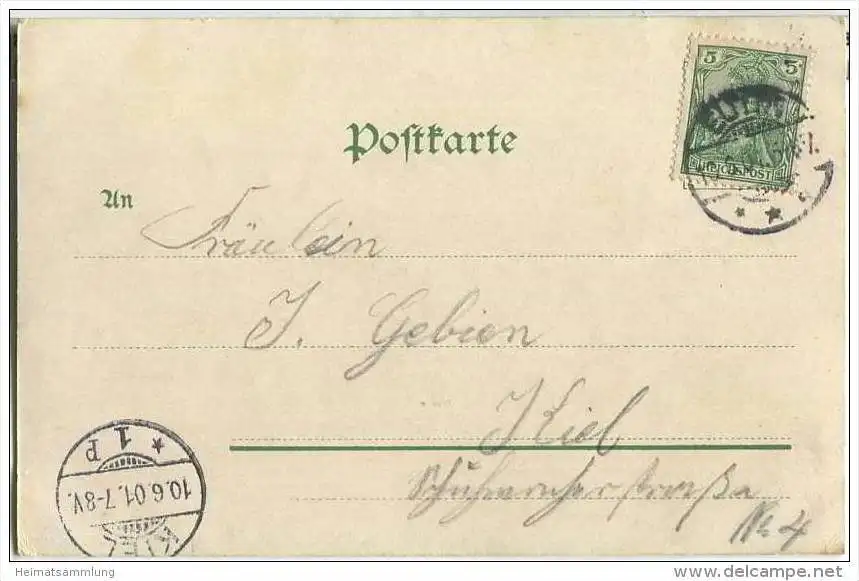 Postkarte
5 5
REICHSPOST
An
Fräulein
J. Gebien
Kiel
Schuhmacherstraße
No 4
KIEL
10.6.01.7-8V.
* 1 P
Heimatsammlung
www.delcampe.net